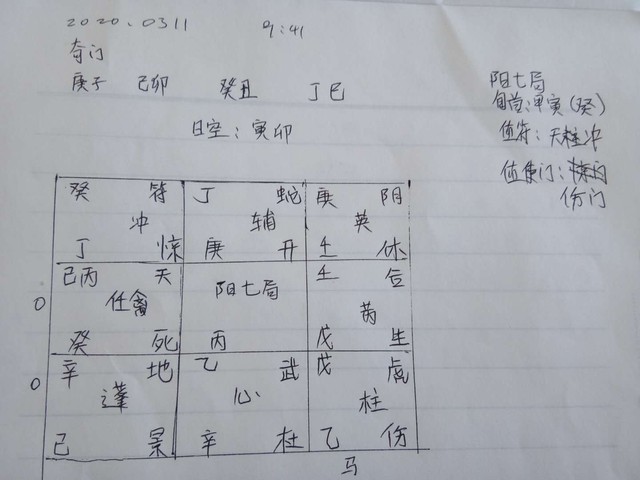 2020.0311 9:41
奇门
庚子 己卯 癸丑 丁巳
日空:寅卯
阳七局
旬首:甲寅(癸)
值符:天柱冲
值使门:
伤门
癸 符
冲
丁 惊
丁 蛇
辅
庚 开
庚 阴
英
壬 休
0
己丙 天
任禽
癸 死
阳七局
丙
壬 合
芮
戊 生
0
辛 地
蓬
己 景
乙 武
心
辛 杜
戊 虎
柱
乙 伤
马